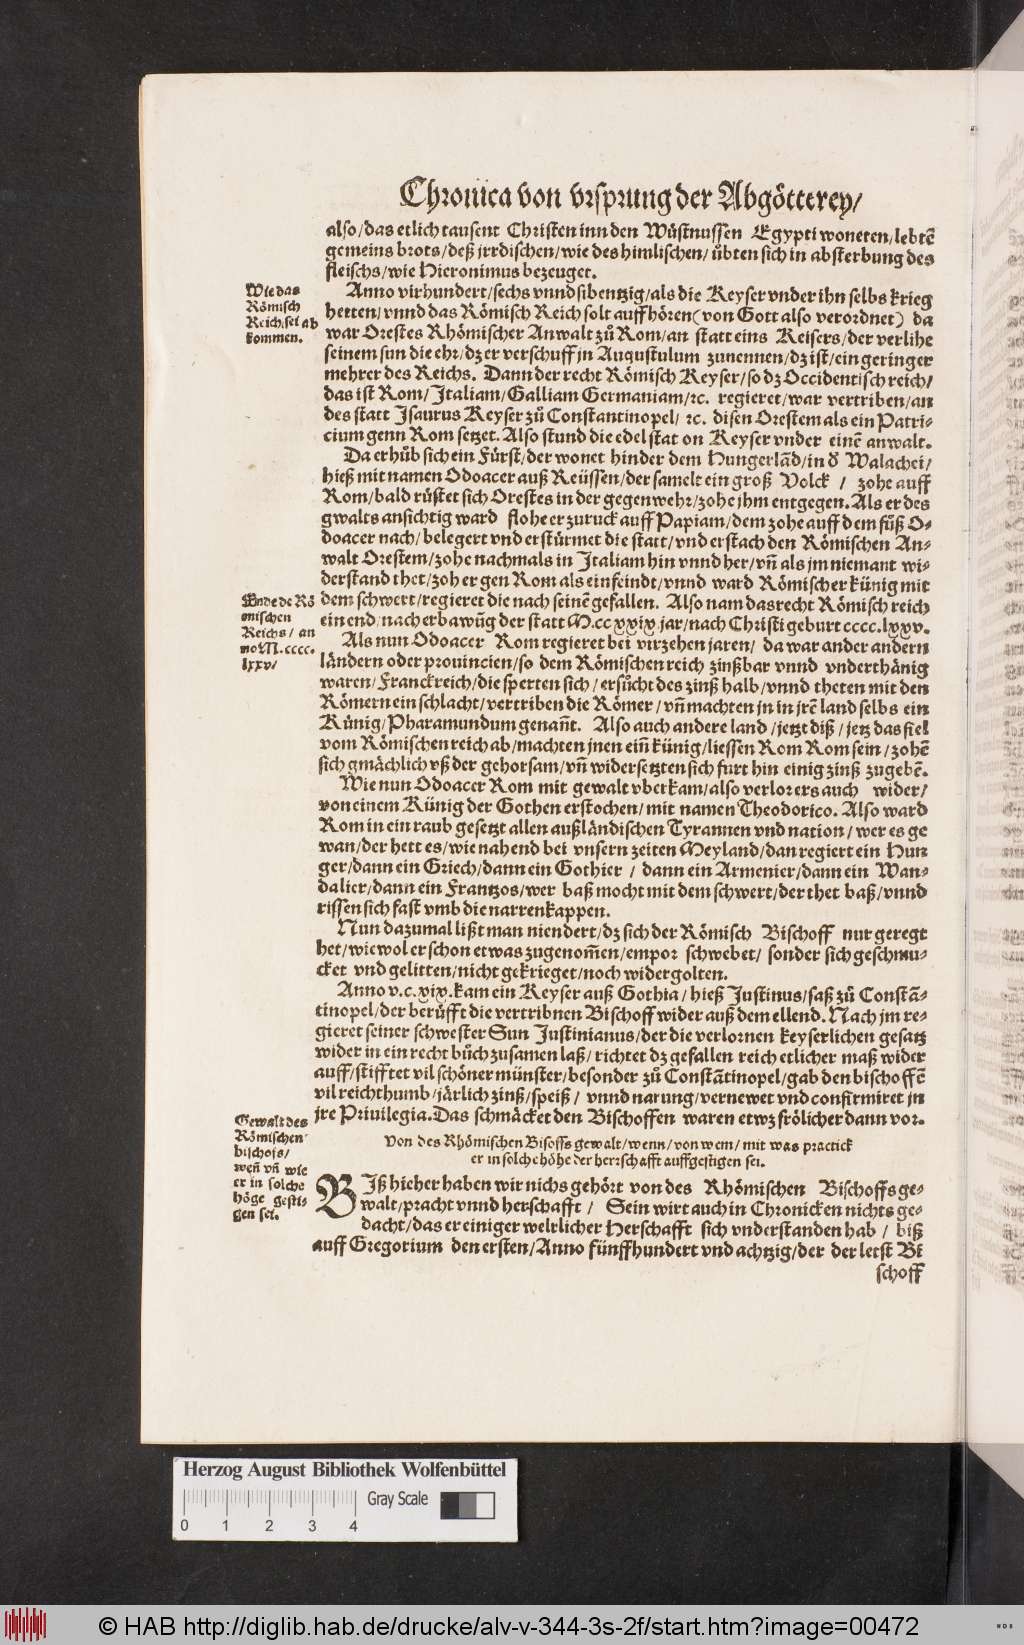 Chronica von vrsprung der Abgötterey/
also/das etlich tausent Christen inn den Wüstnussen Egypti woneten/lebtē
gemeins brots/deß jrrdischen/wie des himlischen/übten sich in absterbung des
fleischs/wie Hieronimus bezeuget.
Wie das
Römisch
Reich sei ab
kommen.
Anno virhundert/sechs vnnd sibentzig/als die Keyser vnder ihn selbs krieg
hetten/vnnd das Römisch Reich solt auffhören(von Gott also verordnet) da
war Orestes Rhömischer Anwalt zů Rom/an statt eins Keisers/der verlihe
seinem sun die ehr/dz er verschuff jn Augustulum zunennen/dz ist/ein geringer
mehrer des Reichs. Dann der recht Römisch Keyser/so dz Occidentisch reich/
das ist Rom/Italiam/Galliam Germaniam/ꝛc. regieret/war vertriben/an
des statt Isaurus Keyser zů Constantinopel/ ꝛc. disen Orestem als ein Patri-
cium genn Rom setzet. Also stund die edel stat on Keyser vnder einē anwalt.
Da erhůb sich ein Fürst/der wonet hinder dem Hungerlād/in d' Walachei/
hieß mit namen Odoacer auß Reüssen/der samelt ein groß Volck / zohe auff
Rom/bald rüstet sich Orestes in der gegenwehr/zohe jhm entgegen. Als er des
gwalts ansichtig ward flohe er zuruck auff Papiam/dem zohe auff dem fůß O-
doacer nach/belegert vnd erstürmet die statt/vnd erstach den Römischen An-
walt Orestem/zohe nachmals in Italiam hin vnnd her/vñ als jm niemant wi-
derstand thet/zoh er gen Rom als ein feindt/vnnd ward Römischer künig mit
dem schwert/regieret die nach seinē gefallen. Also nam das recht Römisch reich
ein end/nach erbawūg der statt M.cc xxix jar/nach Christi geburt cccc.lxxv.
Ende de Rö
mischen
Reichs/ an
no M.cccc.
lxxv/
Als nun Odoacer Rom regieret bei virzehen jaren/ da war ander andern
ländern oder prouincien/so dem Römischen reich zinßbar vnnd vnderthänig
waren/Franckreich/die sperten sich/ersůcht des zinß halb/vnnd theten mit den
Römern ein schlacht/vertriben die Römer/vñ machten jn in jrē land selbs ein
Künig/Pharamundum genañt. Also auch andere land/jetzt diß/jetz das fiel
vom Römischen reich ab/machten jnen eiñ künig/liessen Rom Rom sein/zohē
sich gmächlich vß der gehorsam/vñ widersetzten sich furt hin einig zinß zugebē.
Wie nun Odoacer Rom mit gewalt vberkam/also verlor ers auch wider/
von einem Künig der Gothen erstochen/mit namen Theodorico. Also ward
Rom in ein raub gesetzt allen außländischen Tyrannen vnd nation/wer es ge
wan/der hett es/wie nahend bei vnsern zeiten Meyland/dan regiert ein Hun
ger/dann ein Griech/dann ein Gothier / dann ein Armenier/dann ein Wan-
dalier/dann ein Frantzos/wer baß mocht mit dem schwert/der thet baß/vnnd
rissen sich fast vmb die narrenkappen.
Nun dazumal lißt man niendert/dz sich der Römisch Bischoff nur geregt
het/wiewol er schon etwas zugenom̄en/empor schwebet/ sonder sich geschmu-
cket vnd gelitten/nicht gekrieget/noch widergolten.
Anno v.c.xix.kam ein Keyser auß Gothia/hieß Justinus/saß zů Constā-
tinopel/der berůfft die vertribnen Bischoff wider auß dem ellend. Nach jm re-
gieret seiner schwester Sun Justinianus/der die verlornen keyserlichen gesatz
wider in ein recht bůch zusamen laß/richtet dz gefallen reich etlicher maß wider
auff/stifftet vil schöner münster/besonder zů Constātinopel/gab den bischoffē
vil reichthumb/järlich zinß/speiß/ vnnd narung/vernewet vnd confirmiret jn
jre Priuilegia. Das schmäcket den Bischoffen waren etwz frölicher dann vor.
Von des Rhömischen Bisoffs gewalt/wenn/von wem/mit was practick
er in solche höhe der herrschafft auffgestigen sei.
Gewalt des
Römischen
bischofs/
weñ vñ wie
er in solche
höge gesti-
gen sei.
BIß hieher haben wir nichs gehört von des Rhömischen Bischoffs ge-
walt/pracht vnnd herschafft / Sein wirt auch in Chronicken nichts ge-
dacht/das er einiger weltlicher Herschafft sich vnderstanden hab / biß
auff Gregorium den ersten/Anno fünffhundert vnd achtzig/der der letst Bi
schoff
Herzog August Bibliothek Wolfenbüttel
Gray Scale
0 1 2 3 4
© HAB http://diglib.hab.de/drucke/alv-v-344-3s-2f/start.htm?image=00472